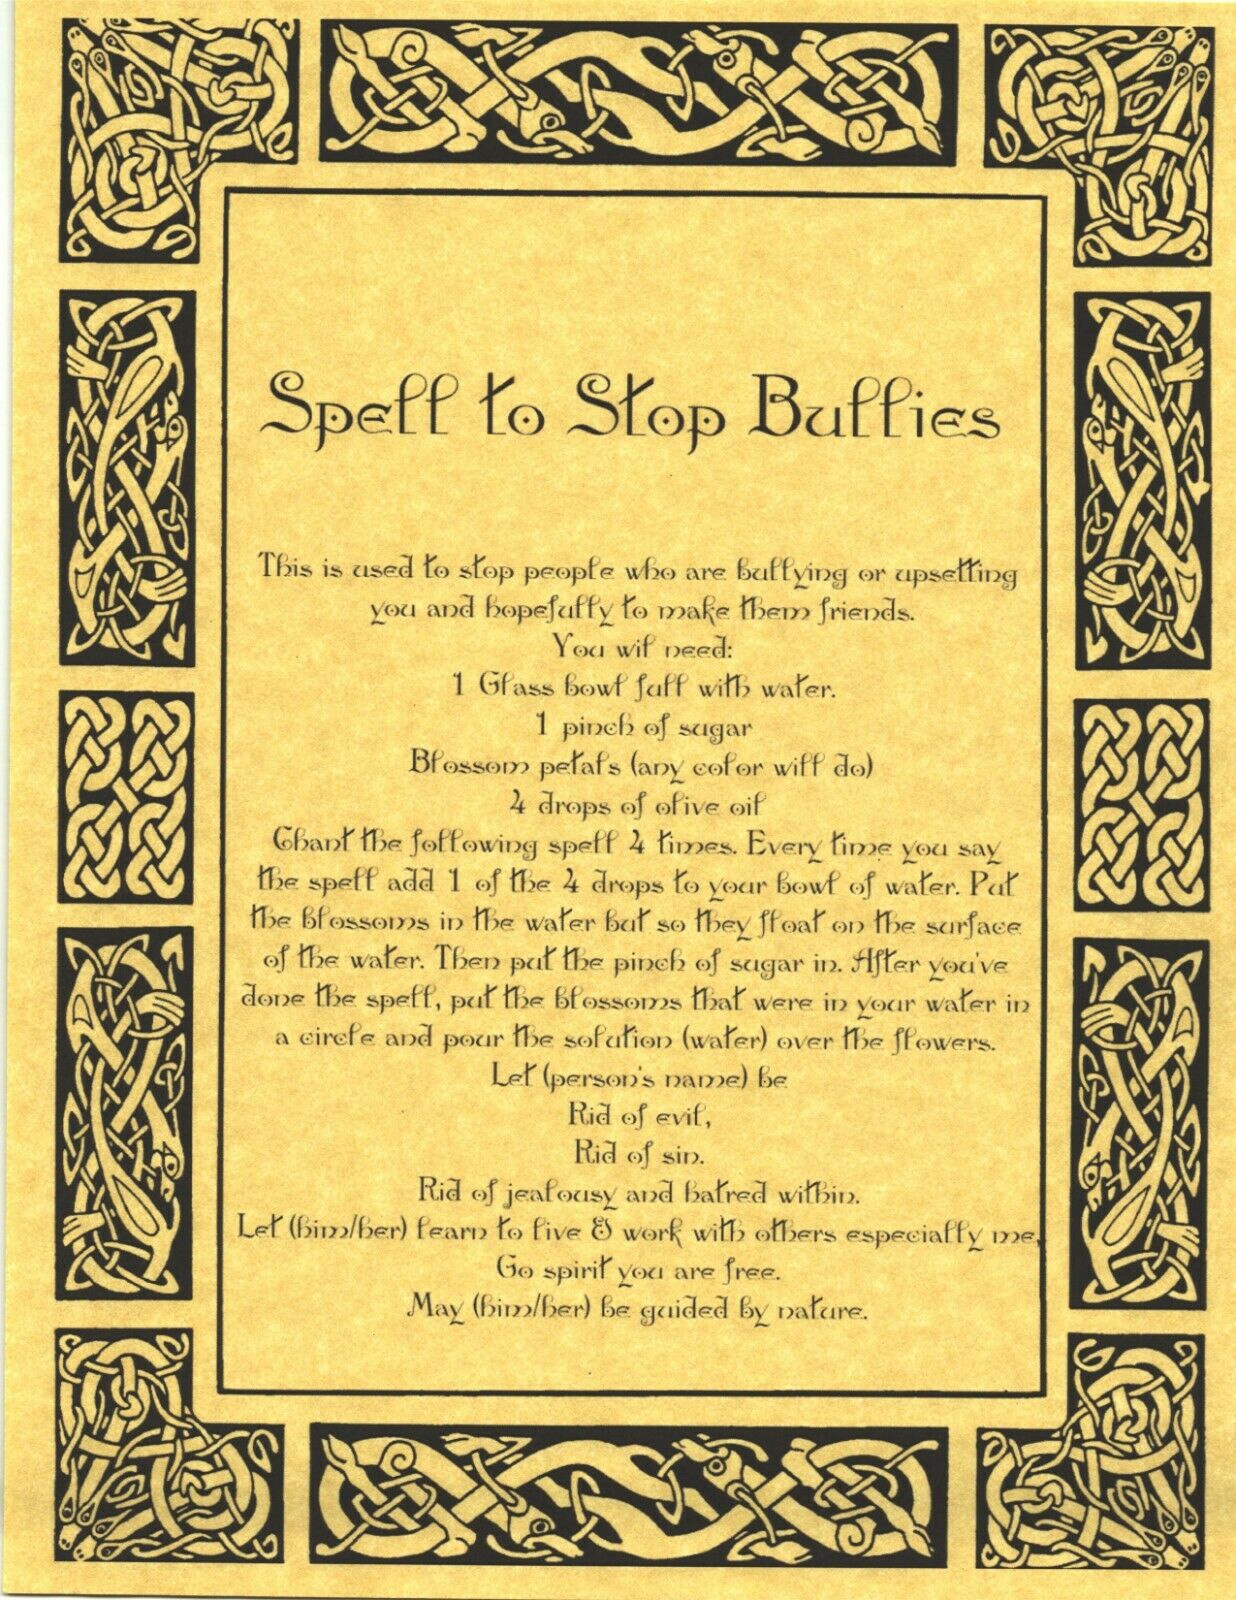 Spell to Stop Bullies
This is used to stop people who are bullying or upsetting
you and hopefully to make them friends.
You wil need:
1 Glass bowl full with water.
1 pinch of sugar
Blossom petals (any color will do)
4 drops of olive oil
Chant the following spell 4 times. Every time you say
the spell add 1 of the 4 drops to your bowl of water. Put
the blossoms in the water but so they float on the surface
of the water. Then put the pinch of sugar in. After you've
done the spell, put the blossoms that were in your water in
a circle and pour the solution (water) over the flowers.
Let (person's name) be
Rid of evil,
Rid of sin.
Rid of jealousy and hatred within.
Let (him/her) learn to live & work with others especially me,
Go spirit you are free.
May (him/her) be guided by nature.